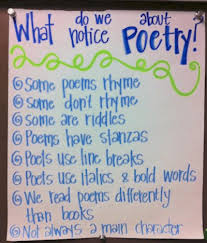 What do we notice about Poetry!
Some poems rhyme
Some don't rhyme
Some are riddles
Poems have stanzas
Poets use line breaks
Poets use italics & bold words
We read poems differently
than books
Not always a main character